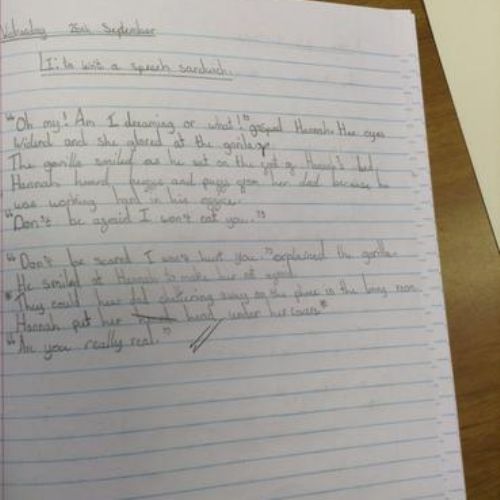 Wednesday 25th September
LI: to write a speech sandwich.
"Oh my! Am I dreaming or what!" gasped Hannah. Her eyes
widend and she glared at the gorilla.
The gorilla smiled as he sat on the of bed.
Hannah heard and from her dad because he
was working hard in his office.
"Don't be afraid I won't eat you."
"Don't be scared I won't hurt you." explained the gorilla.
He smiled at Hannah to make her not afraid
*They could hear dad chattering away on the phone in the living room.
Hannah put her head under her covers*
"Are you really real."